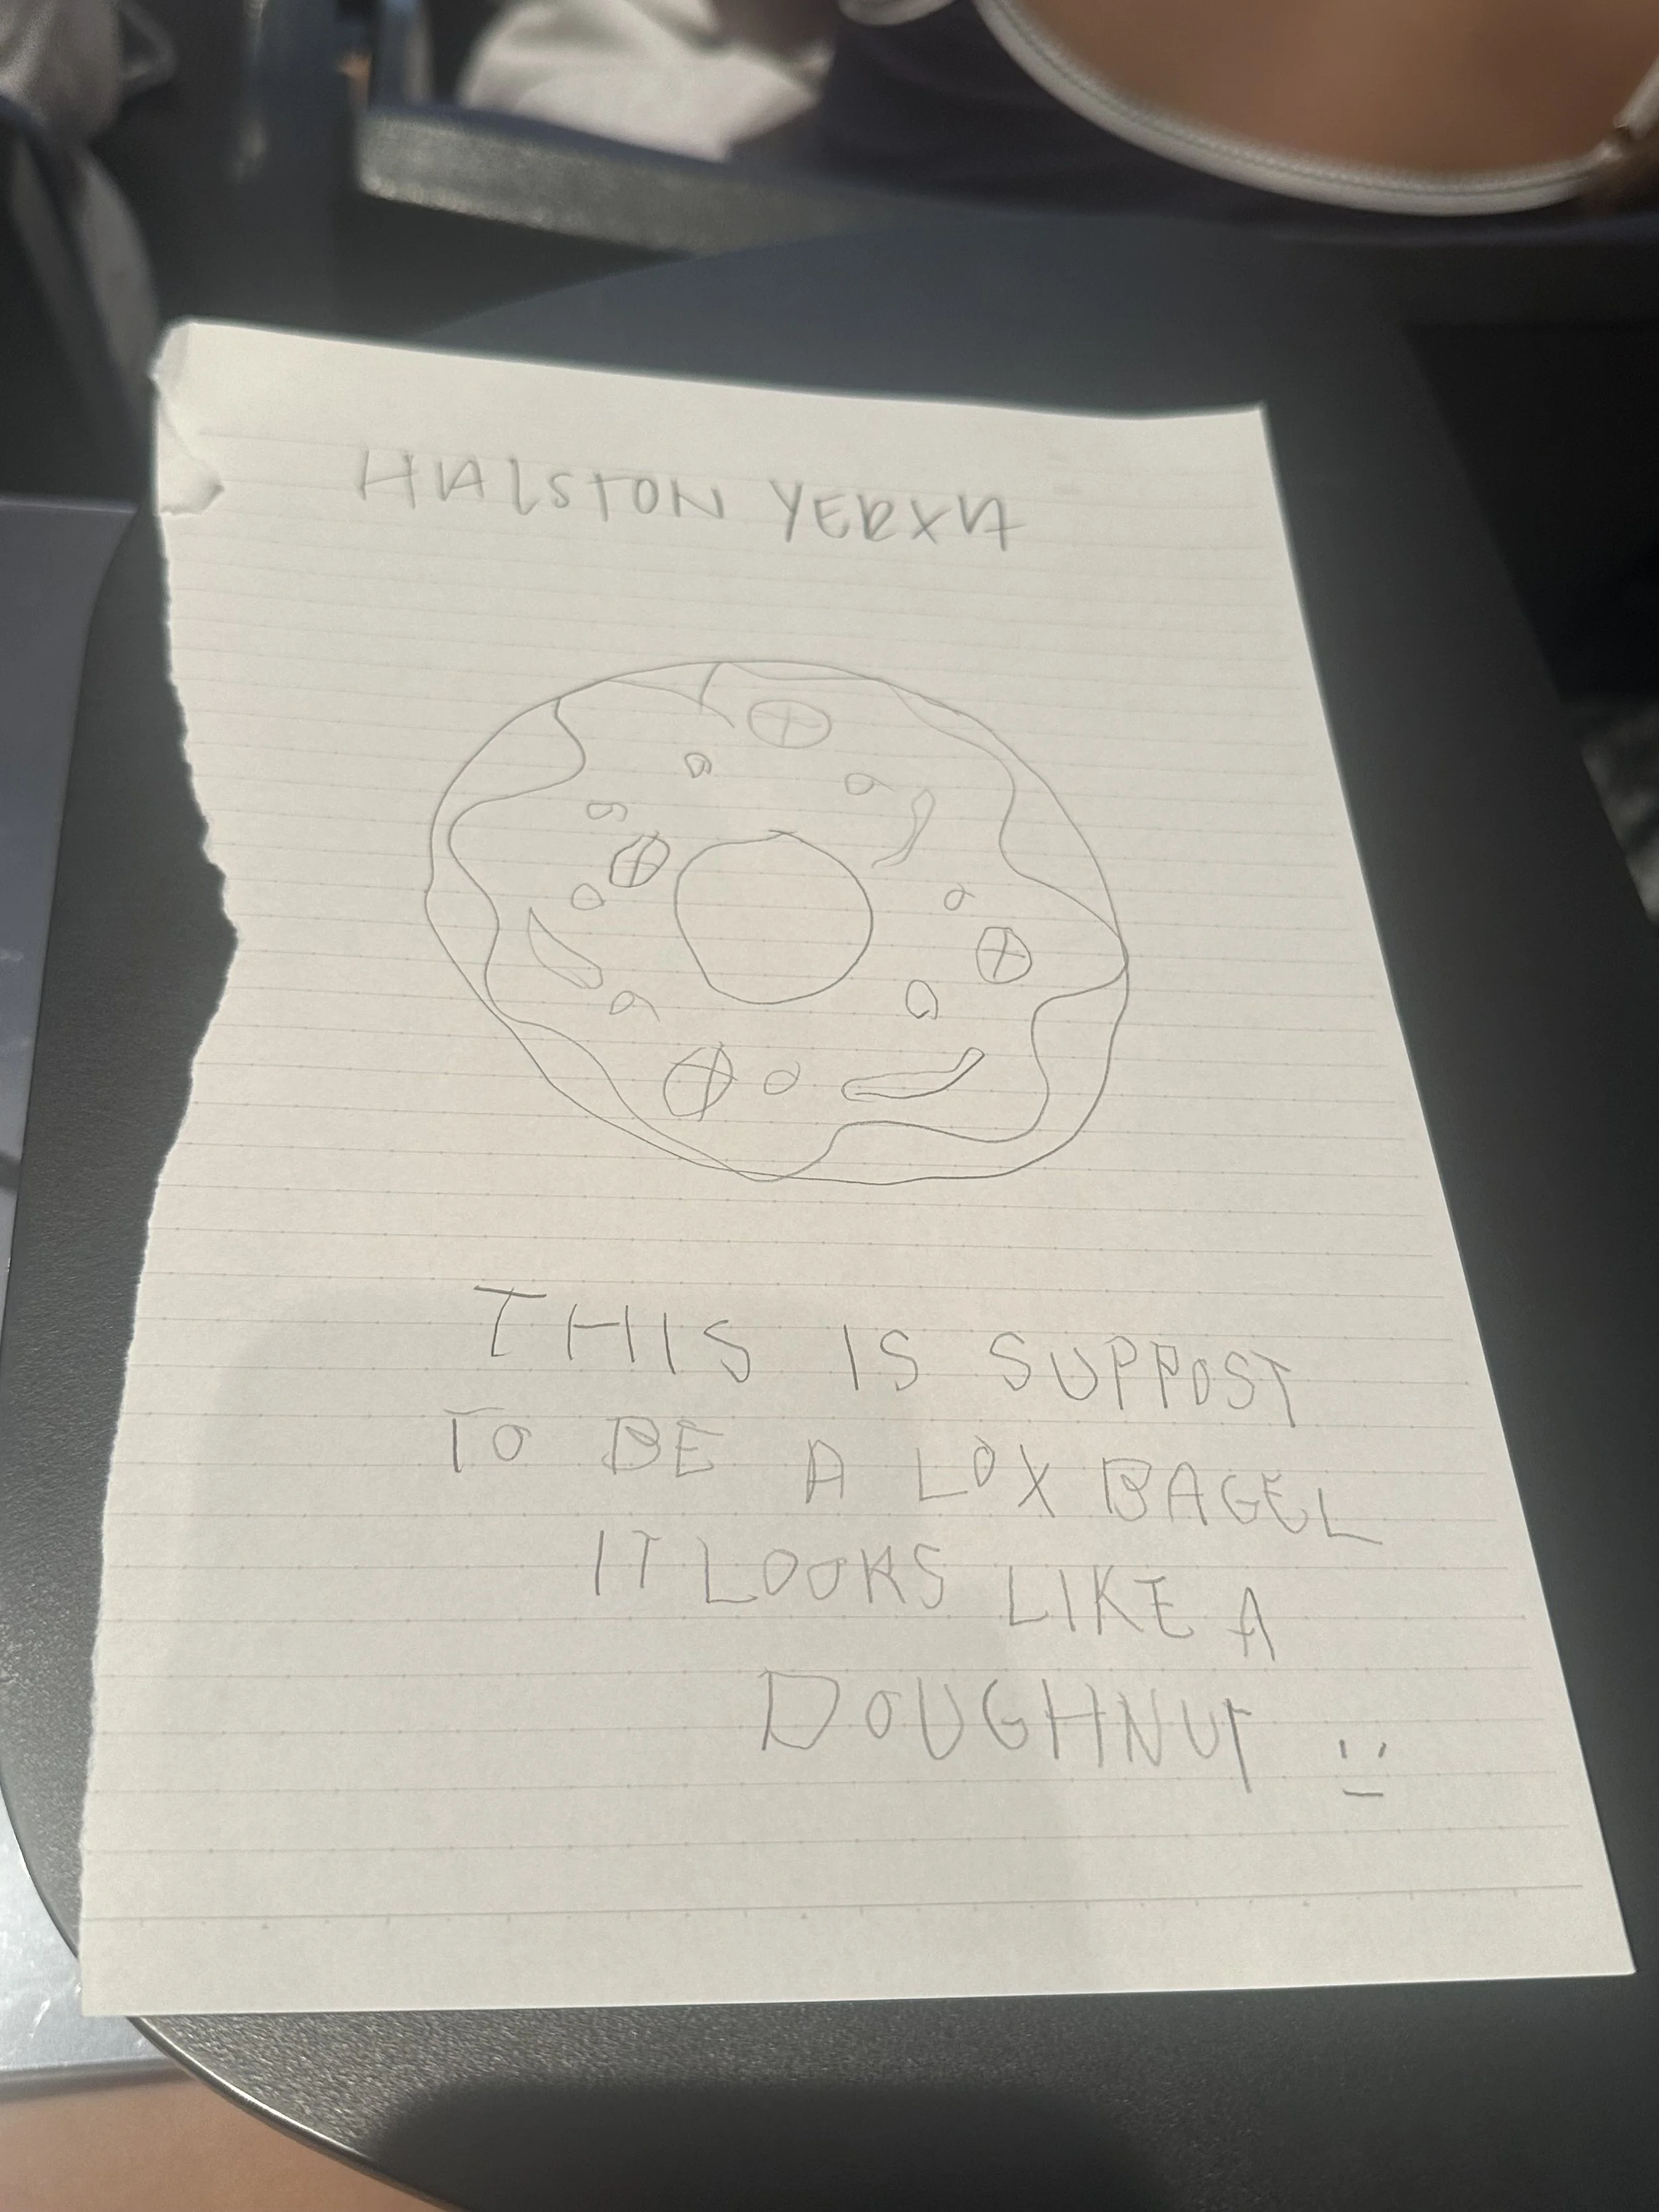 HALSTON YERXA
THIS IS SUPPOST
TO BE A LOX BAGEL
IT LOOKS LIKE A
DOUGHNUT :-